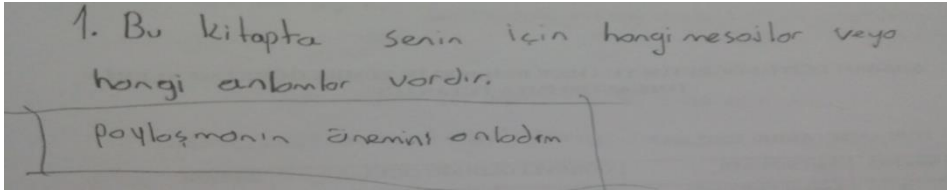 1. Bu kitapta senin için hangi mesajlar veya
hangi anlamlar vardır.
paylaşmanın önemini anladım